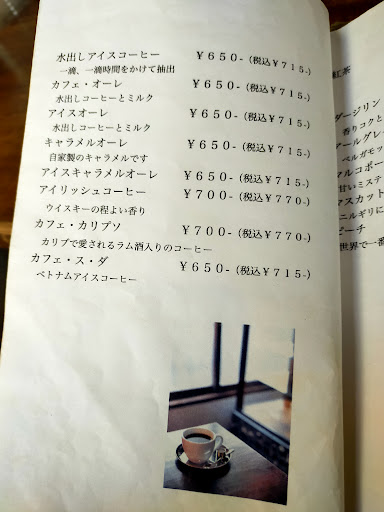 水出しアイスコーヒー　￥６５０-（税込￥７１５-）
一滴、一滴時間をかけて抽出
カフェ・オーレ　￥６５０-（税込￥７１５-）
水出しコーヒーとミルク
アイスオーレ　￥６５０-（税込￥７１５-）
水出しコーヒーとミルク
キャラメルオーレ　￥６５０-（税込￥７１５-）
自家製のキャラメルです
アイスキャラメルオーレ　￥６５０-（税込￥７１５-）
アイリッシュコーヒー　￥７００-（税込￥７７０-）
ウイスキーの程よい香り
カフェ・カリプソ　￥７００-（税込￥７７０-）
カリブで愛されるラム酒入りのコーヒー
カフェ・ス・ダ　￥６５０-（税込￥７１５-）
ベトナムアイスコーヒー
紅茶
ダージリン
香りコクと
アールグレ
ベルガモッ
甘いミステ
マスカット
ニルギリに
ピーチ
世界で一番